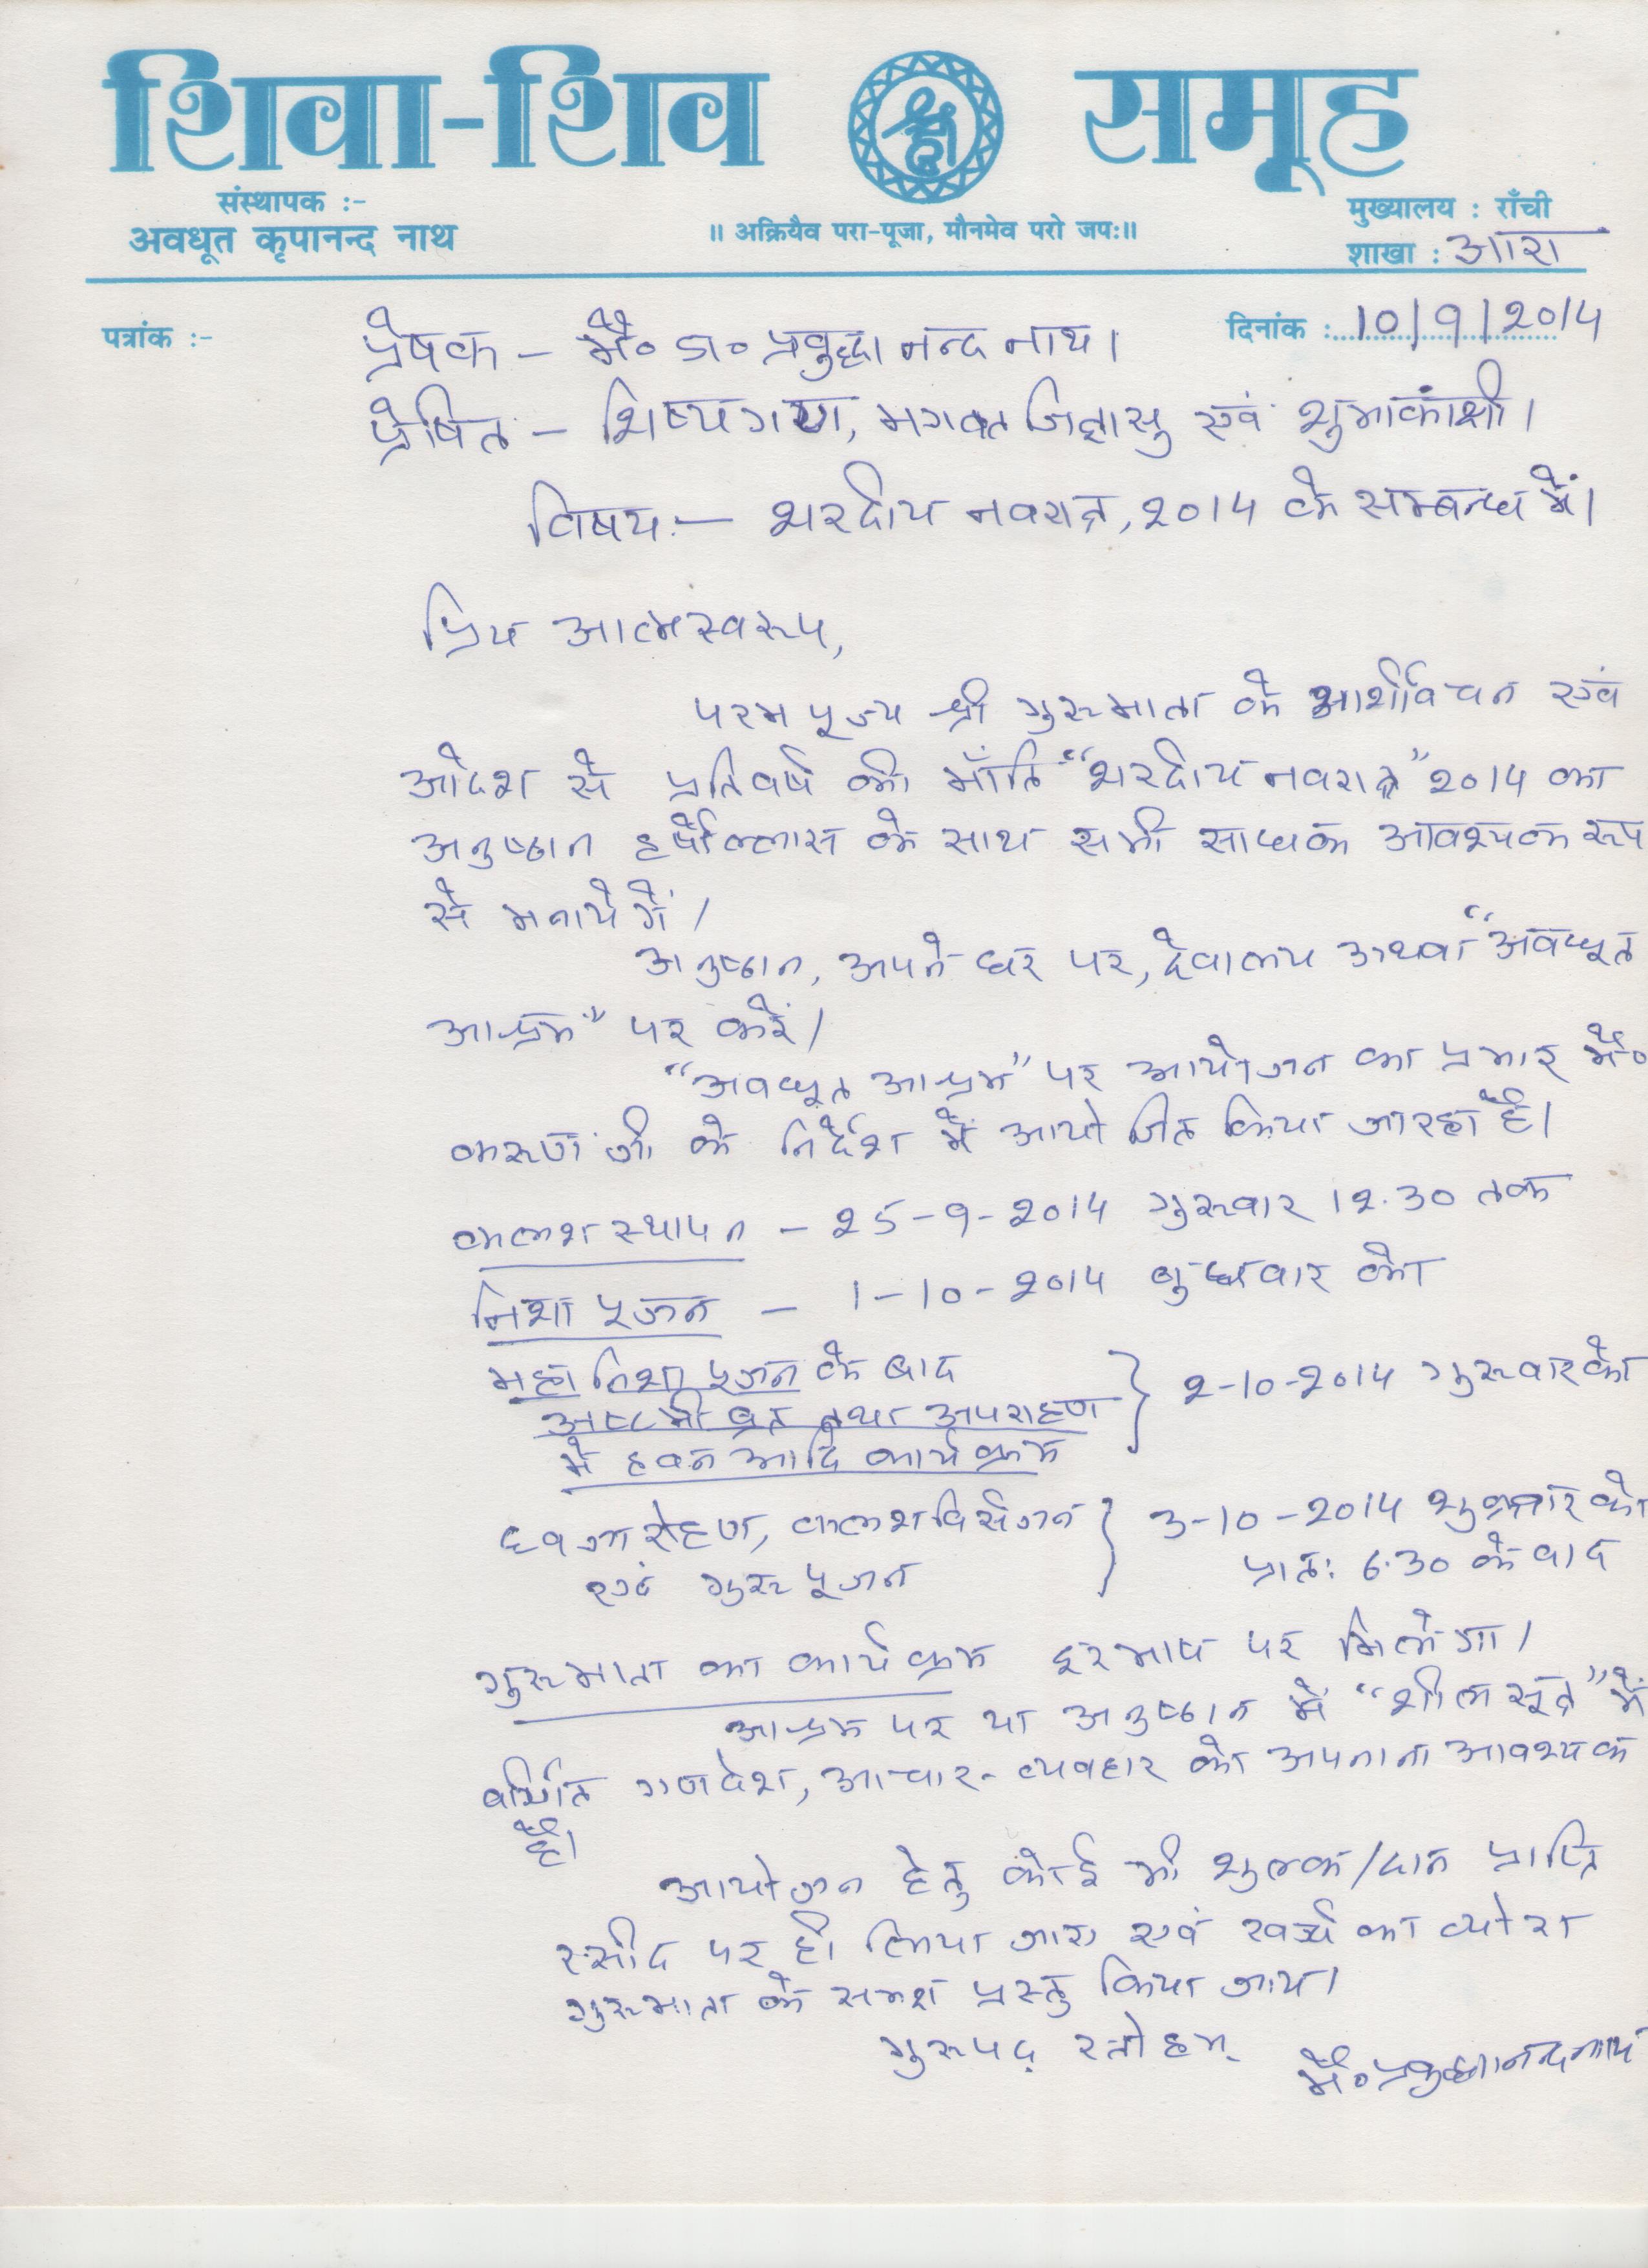 शिवा-शिव समूह
संस्थापक :-
अवधूत कृपानन्द नाथ
॥ अक्रियैव परा-पूजा, मौनमेव परो जपः॥
मुख्यालय : राँची
शाखा : आरा
पत्रांक :-
दिनांक : 10/9/2014
प्रेषक – भै० डा० प्रबुद्धानन्द नाथ।
प्रेषित – शिष्यगण, भगवत जिज्ञासु एवं शुभाकांक्षी।
विषय:- शरदीय नवरात्र, २०14 के सम्बन्ध में।
प्रिय आत्मस्वरूप,
परम पूज्य श्री गुरूमाता के आर्शीवचन एवं
आदेश से प्रतिवर्ष की भाँति "शरदीय नवरात्र" २०14 का
अनुष्ठान हर्षोल्लास के साथ सभी साधक आवश्यक रूप
से मनायेगें।
अनुष्ठान, अपने घर पर, देवालय अथवा "अवधूत
आश्रम" पर करें।
"अवधूत आश्रम" पर आयोजन का प्रभार भै०
करूण जी के निर्देश में आयोजित किया जा रहा है।
कलश स्थापन – २5-9-२०14 गुरूवार 1२.30 तक
निशा पूजन – 1-10-२०14 बुधवार को
महा निशा पूजन के बाद
अष्टमी व्रत तथा अपराहण } २-10-२०14 गुरूवार को
में हवन आदि कार्यक्रम
ध्वजारोहण, कलश विर्सजन } 3-10-2014 शुक्रवार को
एवं गुरू पूजन प्रातः 6.30 के बाद
गुरूमाता का कार्यक्रम दूरभाष पर मिलेगा।
आश्रम पर या अनुष्ठान में "शील सूत्र" में
वर्णित गणवेश, आचार-व्यवहार को अपनाना आवश्यक
है।
आयोजन हेतु कोई भी शुल्क/दान प्राप्ति
रसीद पर ही लिया जाए एवं खर्च का व्योरा
गुरूमाता के समक्ष प्रस्तु किया जाय।
गुरूपद्
भै० प्रबुद्धानन्द नाथ